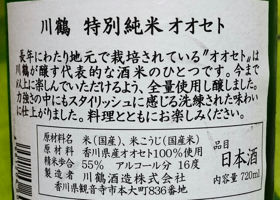 川鶴 特別純米 オオセト
長年にわたり地元で栽培されている"オオセト"は
川鶴が醸す代表的な酒米のひとつです。今まで
以上に楽しんでいただけるよう、全量使用し醸しました。
力強さの中にもスタイリッシュに感じる洗練された味わい
に仕上がりました。料理とともにお楽しみください。
原材料名 米(国産)、米こうじ(国産米)
原料米 香川県産オオセト100%使用
精米歩合 55% アルコール分 16度
製造者 川鶴酒造株式会社
香川県観音寺市本大町836番地
品目
日本酒
内容量 720ml